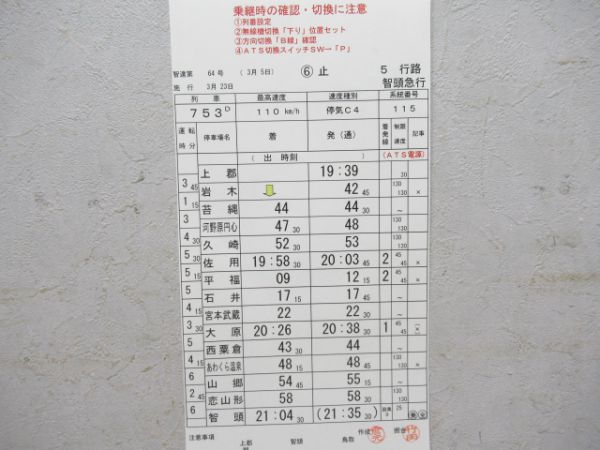 乗継時の確認・切換に注意
①列番設定
②無線機切換「下り」位置セット
③方向切換「B線」確認
④ATS切換スイッチSW→「P」
智達第 64号 (3月5日) ⑥止 5 行路
施行 3月23日 智頭急行
列車 最高速度 速度種別 系統番号
753D 110 km/h 停気C4 115
運転時分 停車場名 着 発(通) 着発線 制限速度 記事
(出時刻) (ATS電源)
上郡 19:39 30
3 45 岩木 42 45 130 130 ×
1 15 苔縄 44 44 30 ~
3 河野原円心 47 30 48 130 130
4 30 久崎 52 30 53 130 130
5 30 佐用 19:58 30 20:03 45 2 45 45 ×
5 平福 09 12 15 2 45 ×
5 石井 17 15 17 45 ~
4 15 宮本武蔵 22 22 30 ~
3 30 大原 20:26 20:38 30 1 45 45 (×)
5 西粟倉 43 30 44 ~
4 15 あわくら温泉 48 15 48 45 ×
6 山郷 54 45 55 15 ~
2 45 恋山形 58 58 30 130 130
6 智頭 21:04 30 (21:35 30) 25
注意事項 上郡 智頭 鳥取 作成 照合